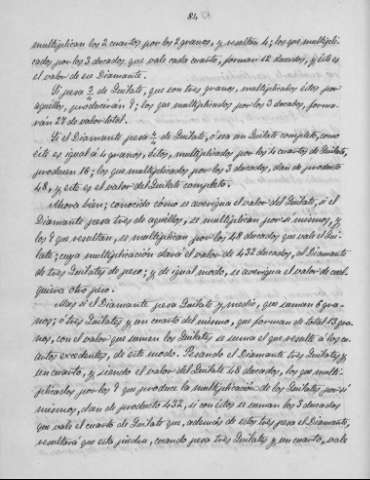 84
multiplican los 2 cuartos por los 2 granos, y resultan 4; los que multipli-
cados por los 3 ducados que vale cada cuarto, forman 12 ducados, y éste es
el valor de ese Diamante.
Si pesa 3/4 de Quilate, que son tres granos, multiplicados éstos por
aquellos, producirán 9; los que multiplicados por los 3 ducados, forma-
rán 27 de valor total.
Si el Diamante pesa 4/4 de Quilate, ó sea un Quilate completo, como
éste es igual á 4 granos, éstos, multiplicados por los 4 cuartos de Quilate,
producen 16; los que multiplicados por los 3 ducados, dan de producto
48, y este es el valor del Quilate completo.
Ahora bien; conocido cómo se averigua el valor del Quilate, si el
Diamante pesa tres de aquellos, se multiplican por sí mismos, y
los 9 que resultan, se multiplican por los 48 ducados que vale el Qui-
late; cuya multiplicación dará el valor de 432 ducados, al Diamante
de tres Quilates de peso; y de igual modo, se averigua el valor de cual-
quiera otro peso.
Mas si el Diamante pesa Quilate y medio, que suman 6 gra-
nos; ó tres Quilates y un cuarto del mismo, que forman de total 13 gra-
nos, con el valor que suman los Quilates se suma el que resulte á los cu-
artos excedentes, de este modo. Pesando el Diamante tres Quilates y
un cuarto, y siendo el valor del Quilate 48 ducados, los que multi-
plicados por los 9 que produce la multiplicación de los Quilates por sí
mismos, dan de producto 432, si con éstos se suman los 3 ducados
que vale el cuarto de Quilate que, además de los tres pesa el Diamante,
resultará que esta piedra, cuando pesa tres Quilates y un cuarto, vale